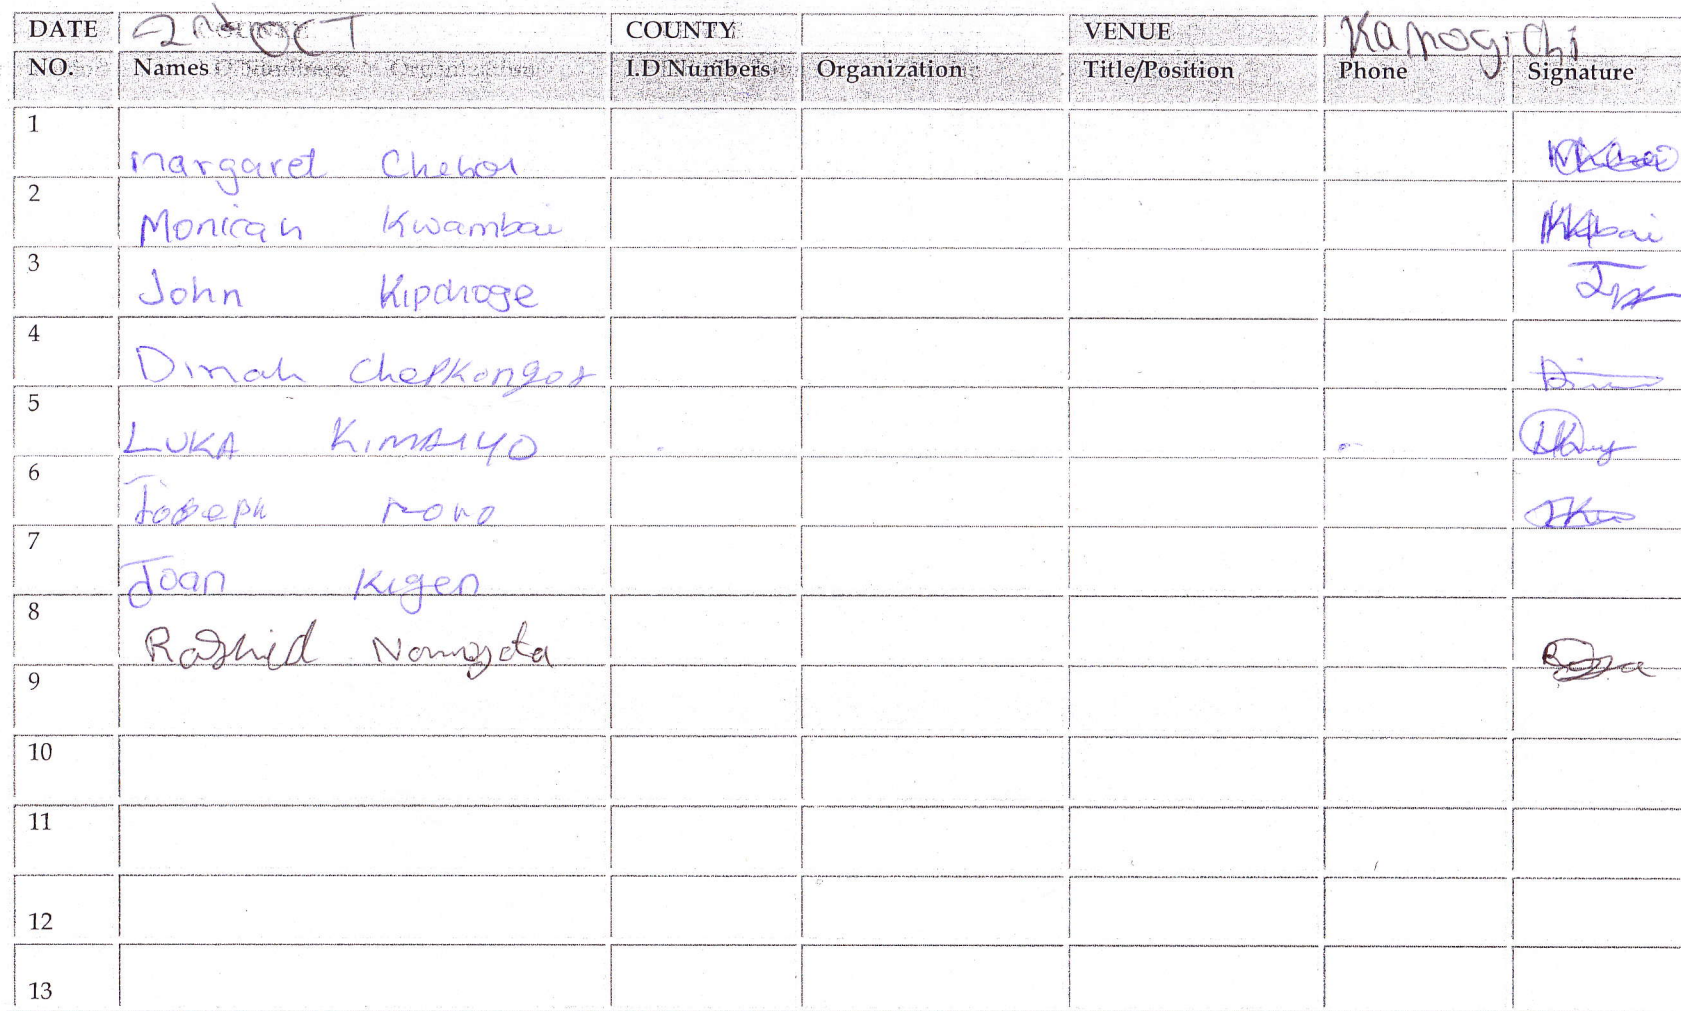 DATE 2nd OCT COUNTY VENUE Kapogichi
NO. Names I.D Numbers Organization Title/Position Phone Signature
1 Margaret Chebor
2 Monicah Kwambai
3 John Kipchoge
4 Dinah Chepkongor
5 LUKA KIMAIYO
6 Joseph
7 Joan Kigen
8 Rashid
9
10
11
12
13